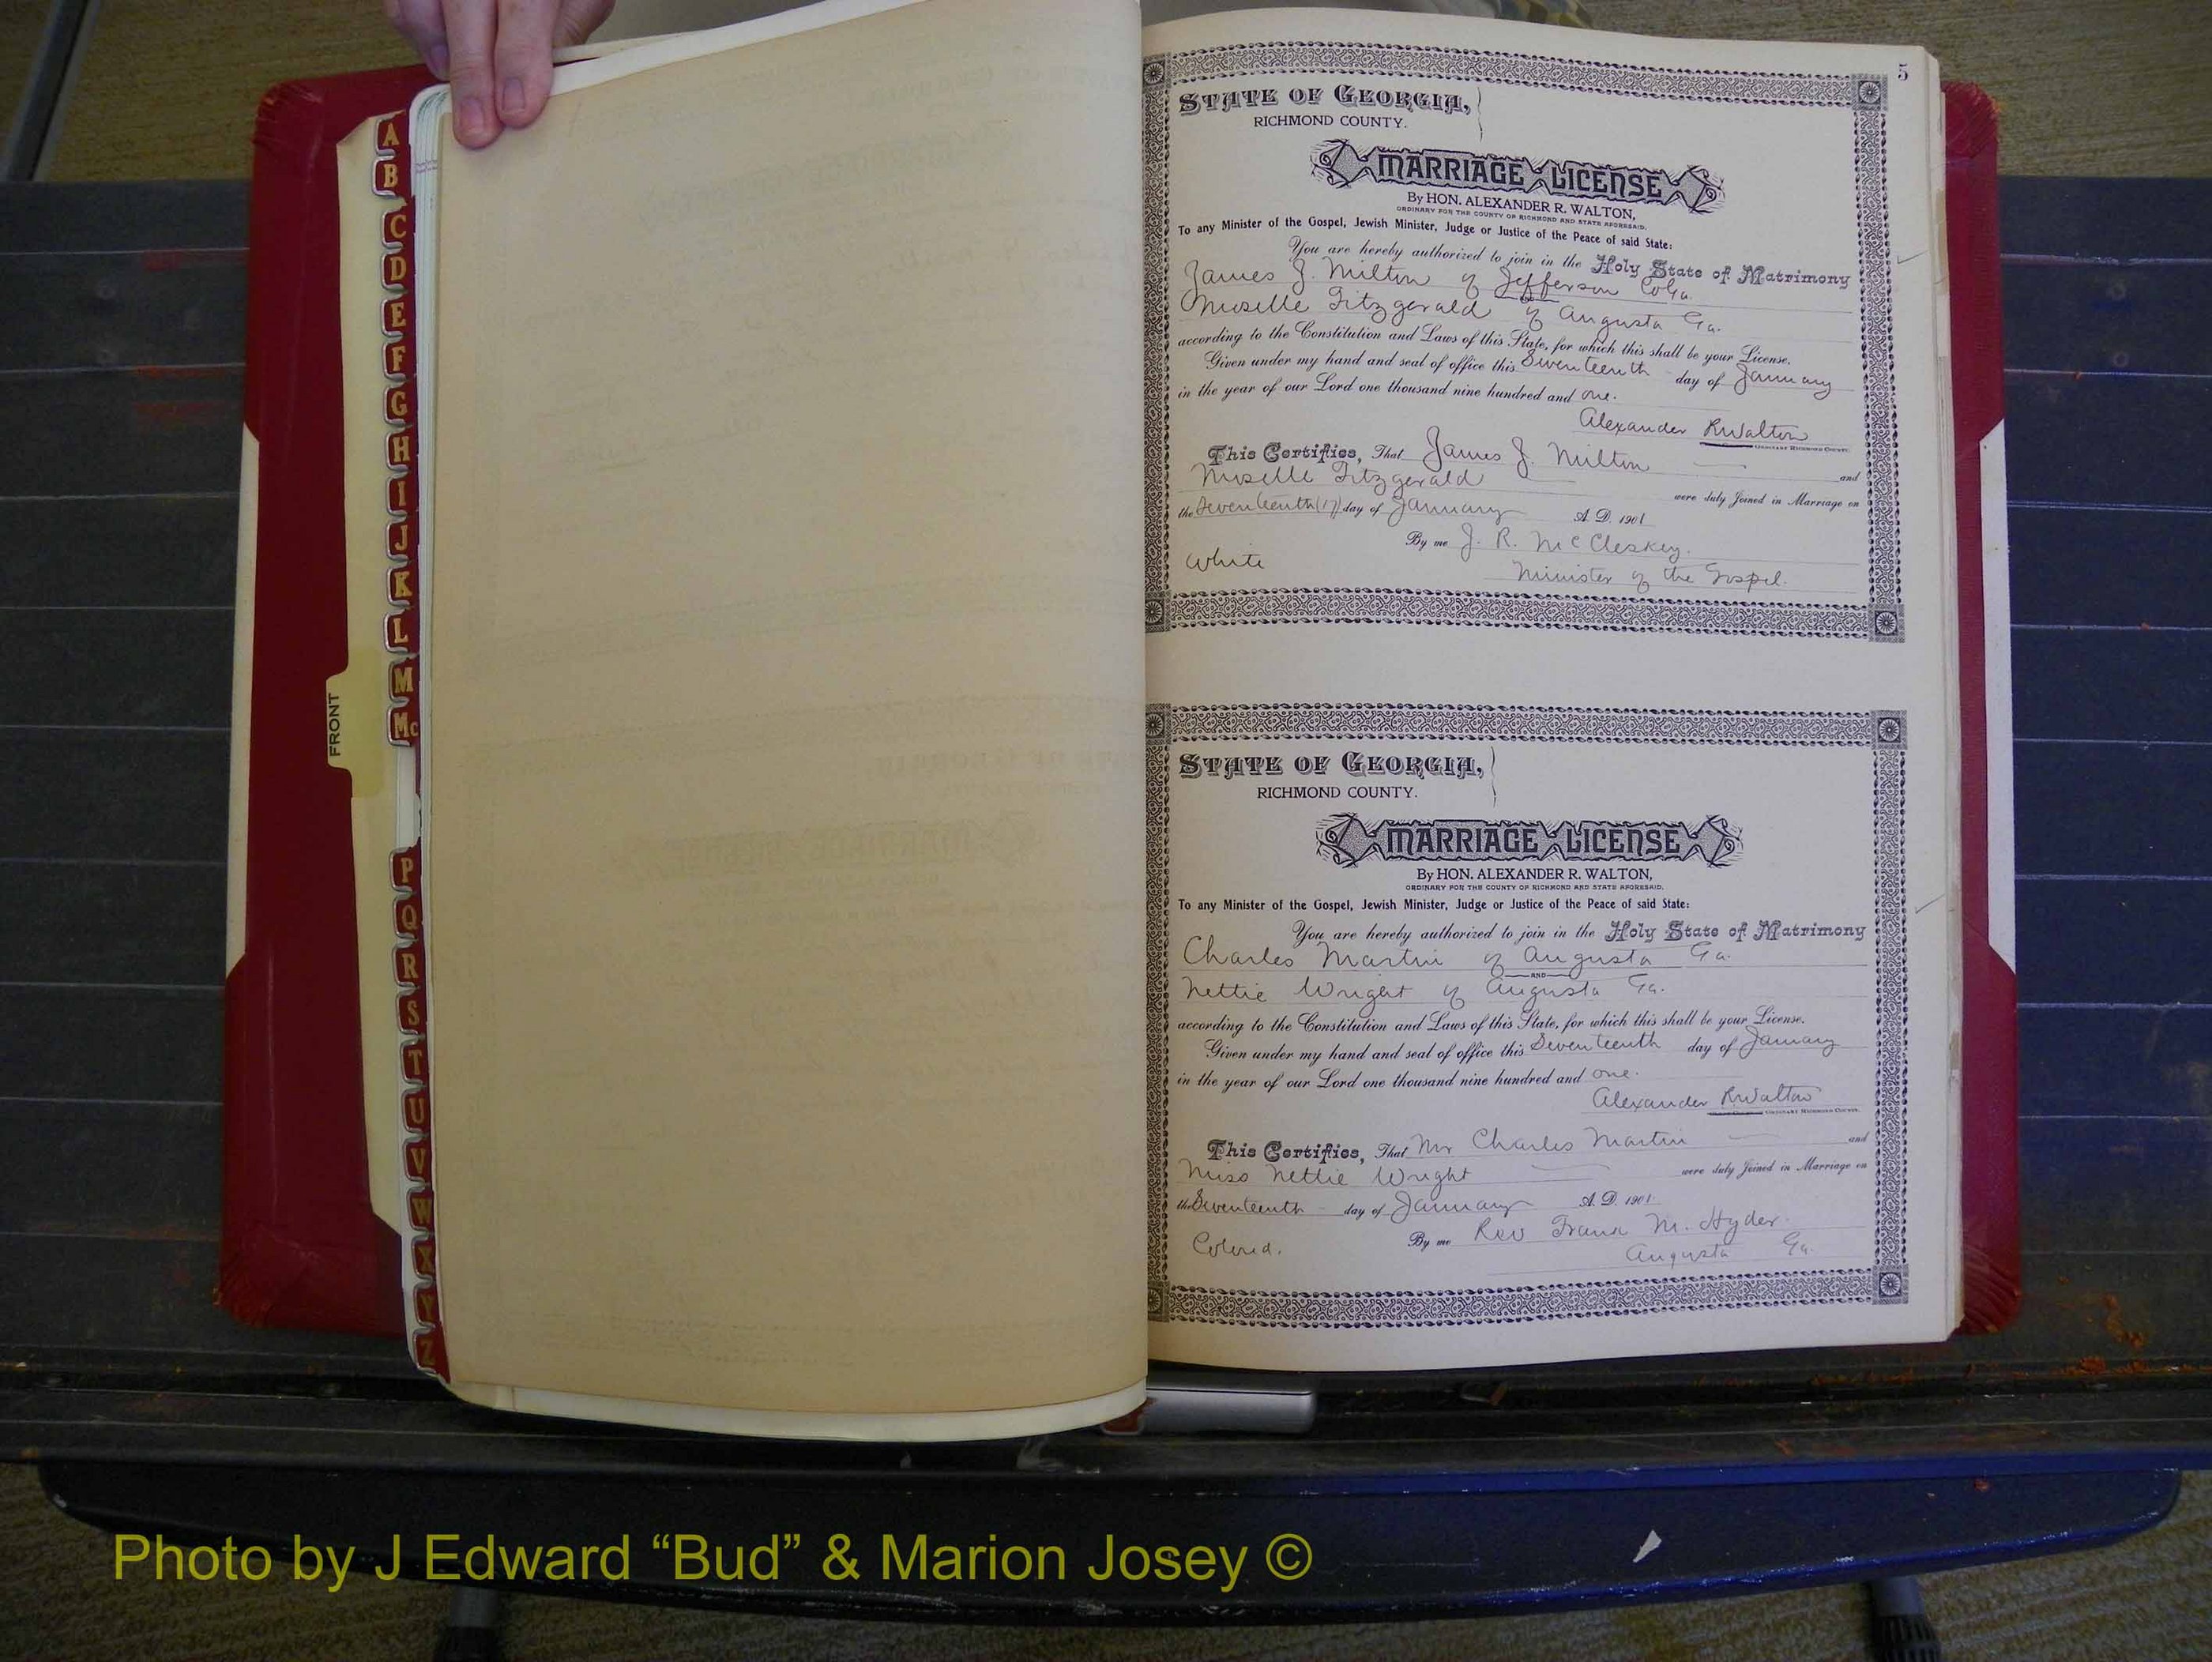 5
STATE OF GEORGIA,
RICHMOND COUNTY.
MARRIAGE LICENSE
By HON. ALEXANDER R. WALTON,
ORDINARY FOR THE COUNTY OF RICHMOND AND STATE AFORESAID.
To any Minister of the Gospel, Jewish Minister, Judge or Justice of the Peace of said State:
You are hereby authorized to join in the Holy State of Matrimony
James J. Milton of Jefferson Co Ga.
AND
Moselle Fitzgerald of Augusta Ga.
according to the Constitution and Laws of this State, for which this shall be your License.
Given under my hand and seal of office this Seventeenth day of January
in the year of our Lord one thousand nine hundred and one.
Alexander R Walton
ORDINARY RICHMOND COUNTY.
This Certifies, That James J. Milton and
Moselle Fitzgerald were duly Joined in Marriage on
the Seventeenth (17) day of January A. D. 1901
By me J. R. McCleskey.
White Minister of the Gospel.
STATE OF GEORGIA,
RICHMOND COUNTY.
MARRIAGE LICENSE
By HON. ALEXANDER R. WALTON,
ORDINARY FOR THE COUNTY OF RICHMOND AND STATE AFORESAID.
To any Minister of the Gospel, Jewish Minister, Judge or Justice of the Peace of said State:
You are hereby authorized to join in the Holy State of Matrimony
Charles Martin of Augusta Ga.
AND
Nettie Wright of Augusta Ga.
according to the Constitution and Laws of this State, for which this shall be your License.
Given under my hand and seal of office this Seventeenth day of January
in the year of our Lord one thousand nine hundred and one.
Alexander R Walton
ORDINARY RICHMOND COUNTY.
This Certifies, That Mr Charles Martin and
Miss Nettie Wright were duly Joined in Marriage on
the Seventeenth day of January A. D. 1901.
By me Rev Frank M. Hyder.
Colored. Augusta Ga.
A
B
C
D
E
F
G
H
I
J
K
L
M
Mc
P
Q
R
S
T
U
V
W
X
Y
Z
FRONT
Photo by J Edward “Bud” & Marion Josey ©